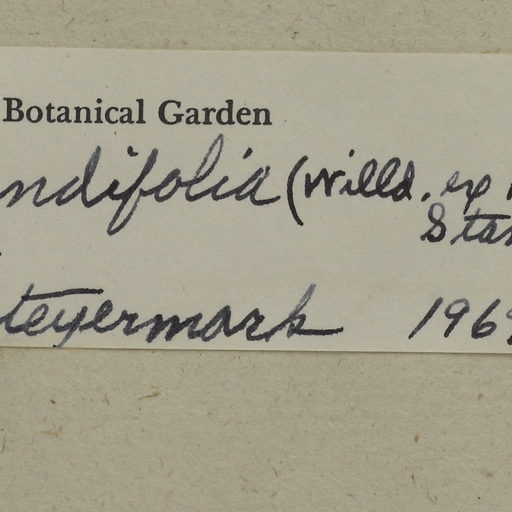 Botanical Garden
ndifolia (Willd. ex
Stan
teyermark 1969